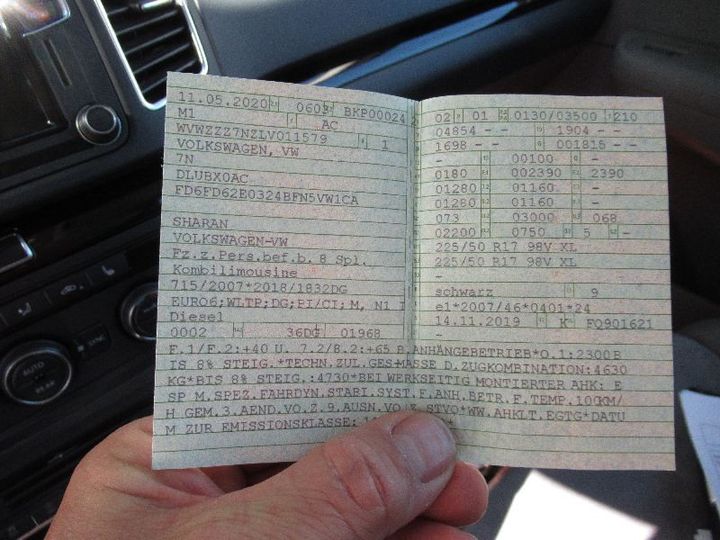 11.05.2020 0603 BKP00024
M1 AC
WVWZZZ7NZLV011579 1
VOLKSWAGEN, VW
7N
DLUBX0AC
FD6FD62E0324BFN5VW1CA
SHARAN
VOLKSWAGEN-VW
Fz.z.Pers.bef.b. 8 Spl.
Kombilimousine
715/2007*2018/1832DG
EURO6;WLTP;DG;PI/CI; M, N1 I
Diesel
0002 36DG 01968
02 01 0130/03500 210
04854 - - 1904 - -
1698 - - 001815 - -
- 00100 -
0180 002390 2390
01280 01160 -
01280 01160 -
073 03000 068
02200 0750 5 -
225/50 R17 98V XL
225/50 R17 98V XL
-
schwarz 9
e1*2007/46*0401*24
14.11.2019 K FQ901621
-
F.1/F.2:+40 U. 7.2/8.2:+65 B.ANHÄNGEBETRIEB*O.1:2300B
IS 8% STEIG.*TECHN.ZUL.GES-MASSE D.ZUGKOMBINATION:4630
KG*BIS 8% STEIG.:4730*BEI WERKSEITIG MONTIERTER AHK: E
SP M.SPEZ.FAHRDYN.STABI.SYST.F.ANH.BETR.F.TEMP.100KM/
H GEM.3.AEND.VO.Z.9.AUSN.VO.Z.STVO*WW.AHKLT.EGTG*DATU
M ZUR EMISSIONSKLASSE: